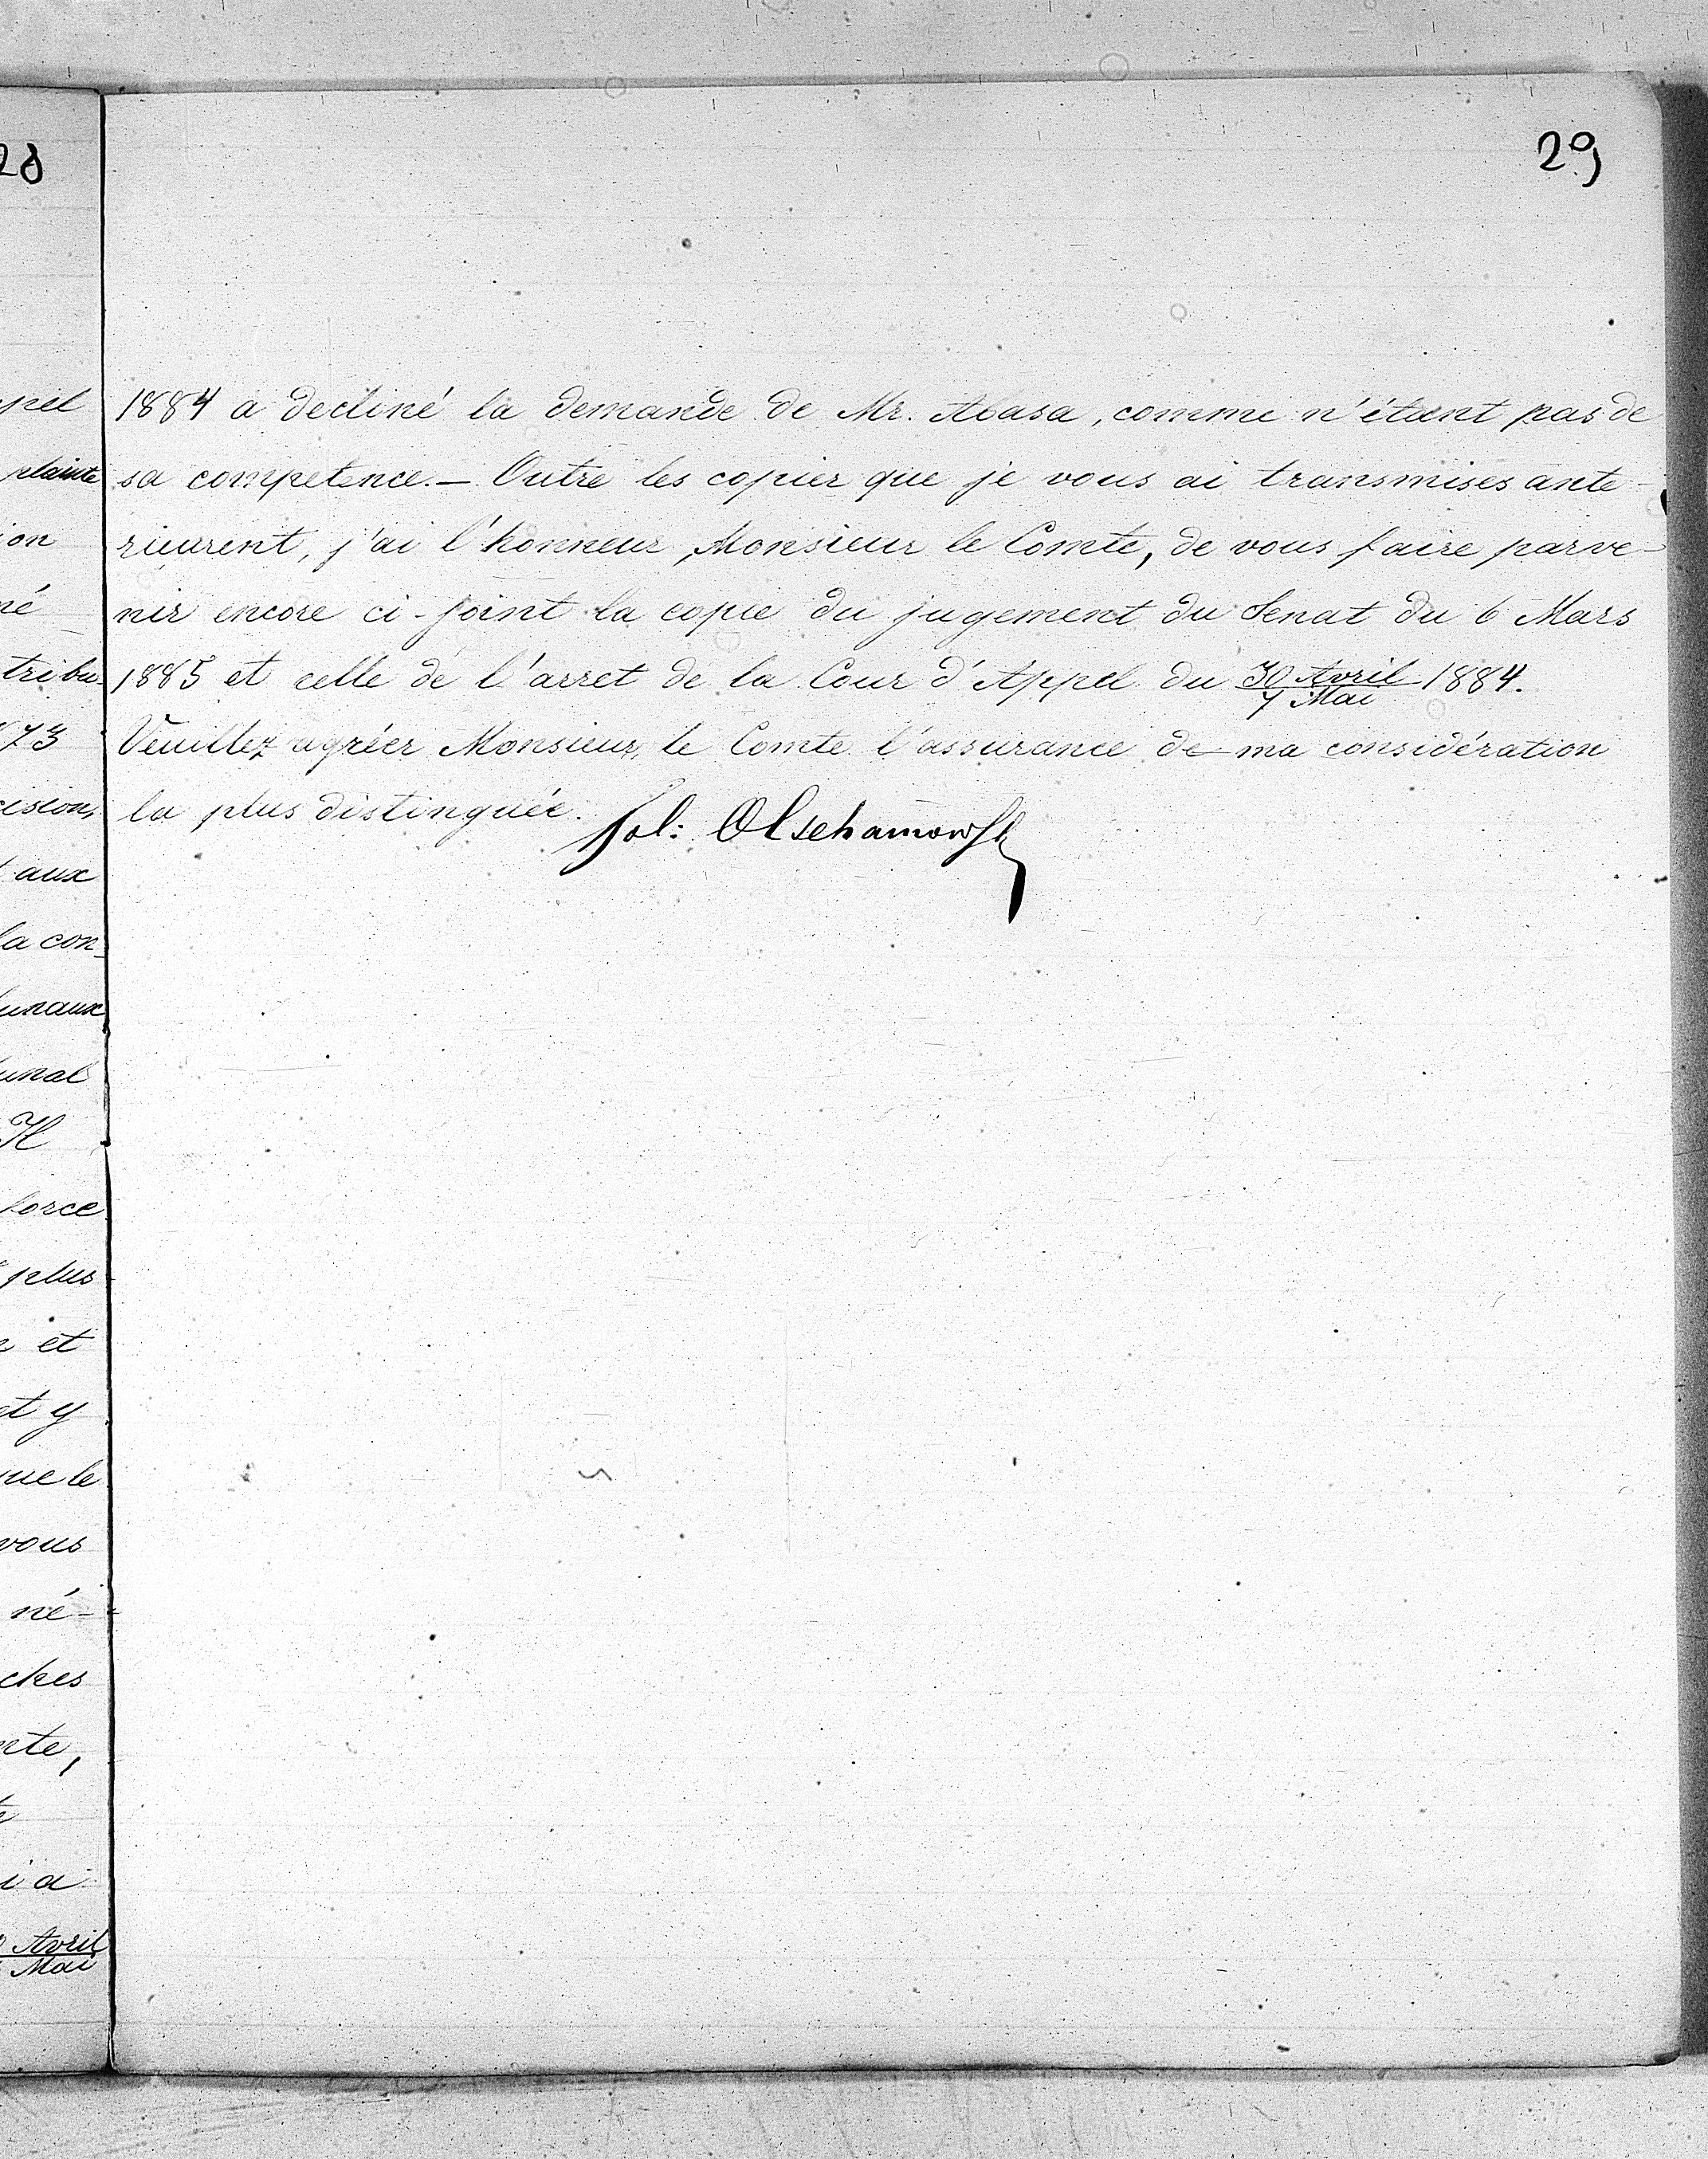 28
29
pel
plainte
ion
né
tribu
73
cision,
aux
la con
unaux
unal
Il
force
plus
et
et y
que le
vous
né-
ches
nte,
i a
Avril
Mai
1884 a decliné la demande de Mr. Avasa, comme n'étant pas de
sa competence. — Outre les copier que je vous ai transmises ante-
rieurent, j'ai l'honneur, Monsieur le Comte, de vous faire parve-
nir encore ci-joint la copie du jugement du Senat du 6 Mars
1885 et celle de l'arret de la Cour d'Appel du 30 Avril 1884.
7 Mai
Veuillez agréer Monsieur, le Comte l'assurance de ma considération
la plus distinguée.